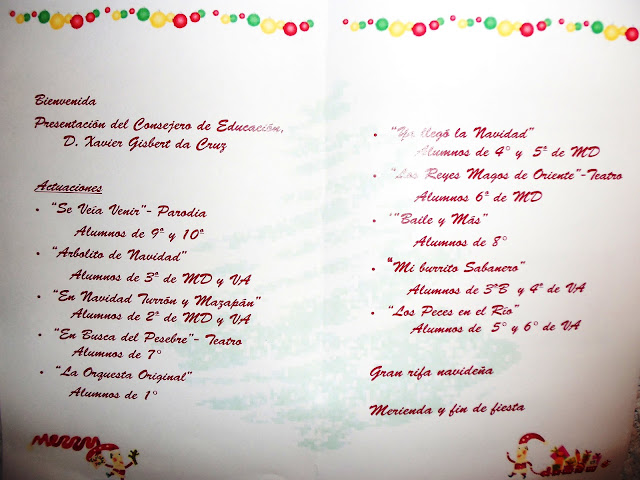 Bienvenida
Presentación del Consejero de Educación,
D. Xavier Gisbert da Cruz
Actuaciones
• "Se Veía Venir"- Parodia
Alumnos de 9ª y 10ª
• "Arbolito de Navidad"
Alumnos de 3ª de MD y VA
• "En Navidad Turrón y Mazapán"
Alumnos de 2ª de MD y VA
• "En Busca del Pesebre"- Teatro
Alumnos de 7°
• "La Orquesta Original"
Alumnos de 1°
merry
• "Ya llegó la Navidad"
Alumnos de 4° y 5ª de MD
• "Los Reyes Magos de Oriente"-Teatro
Alumnos 6ª de MD
• "Baile y Más"
Alumnos de 8°
• "Mi burrito Sabanero"
Alumnos de 3ªB y 4ª de VA
• "Los Peces en el Río"
Alumnos de 5° y 6° de VA
Gran rifa navideña
Merienda y fin de fiesta